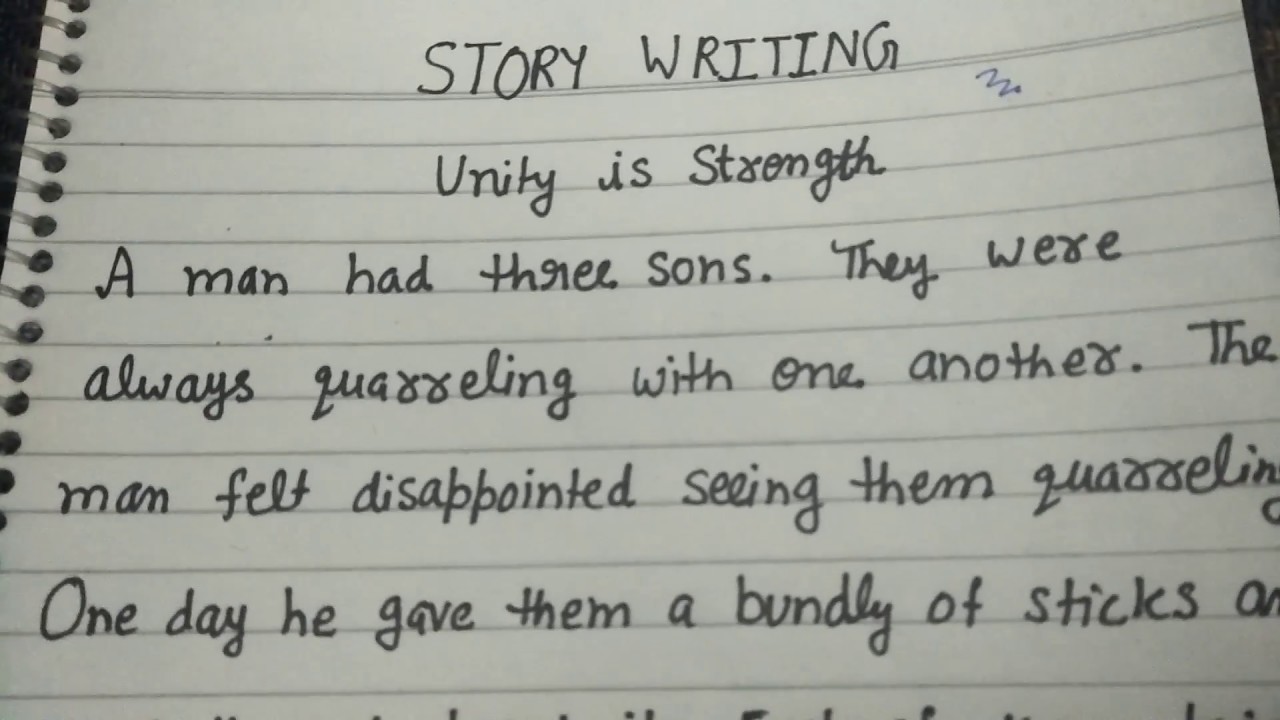 STORY WRITING
Unity is Strength
A man had three sons. They were
always quarreling with one another. The
man felt disappointed seeing them quarreling
One day he gave them a bundly of sticks an